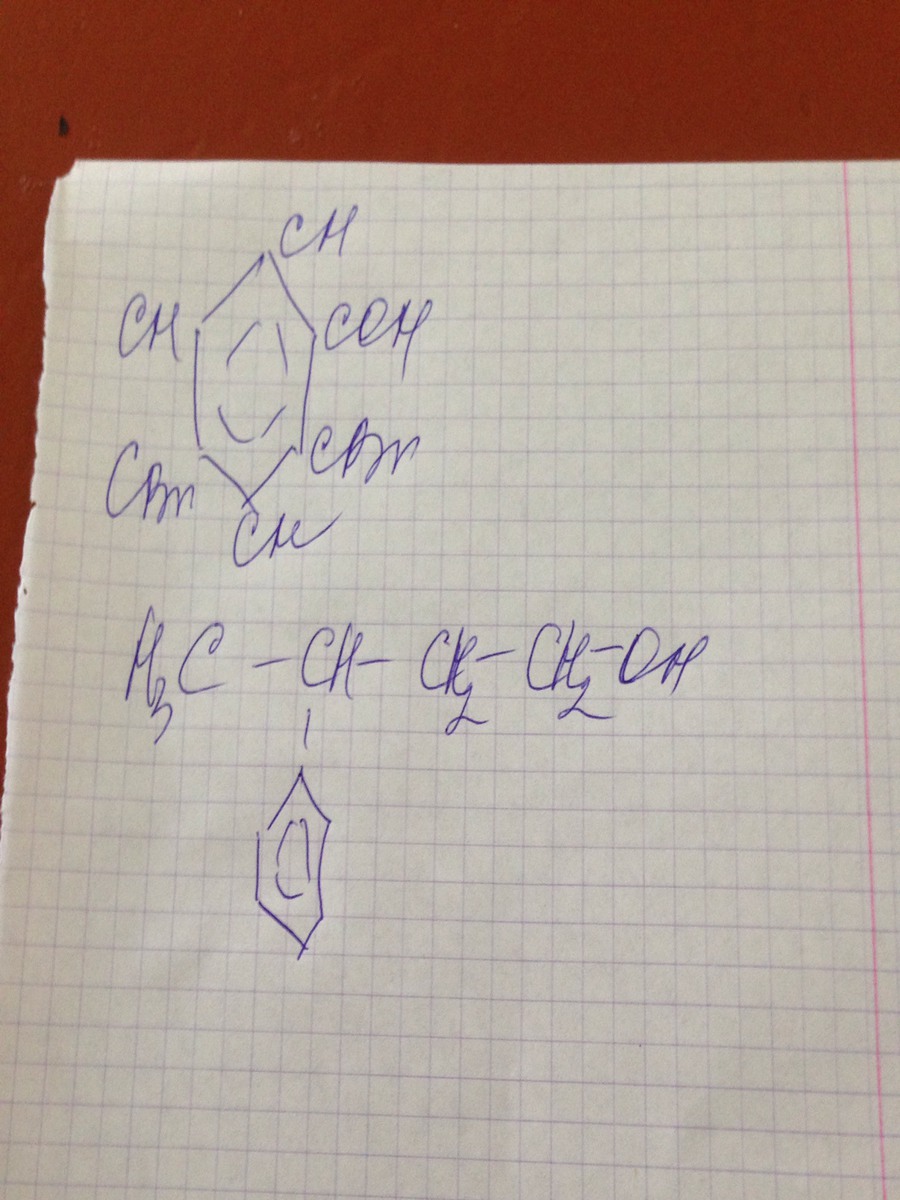 CH
CH COH
CBr CBr
CH
H3C - CH - CH2 - CH2 - OH